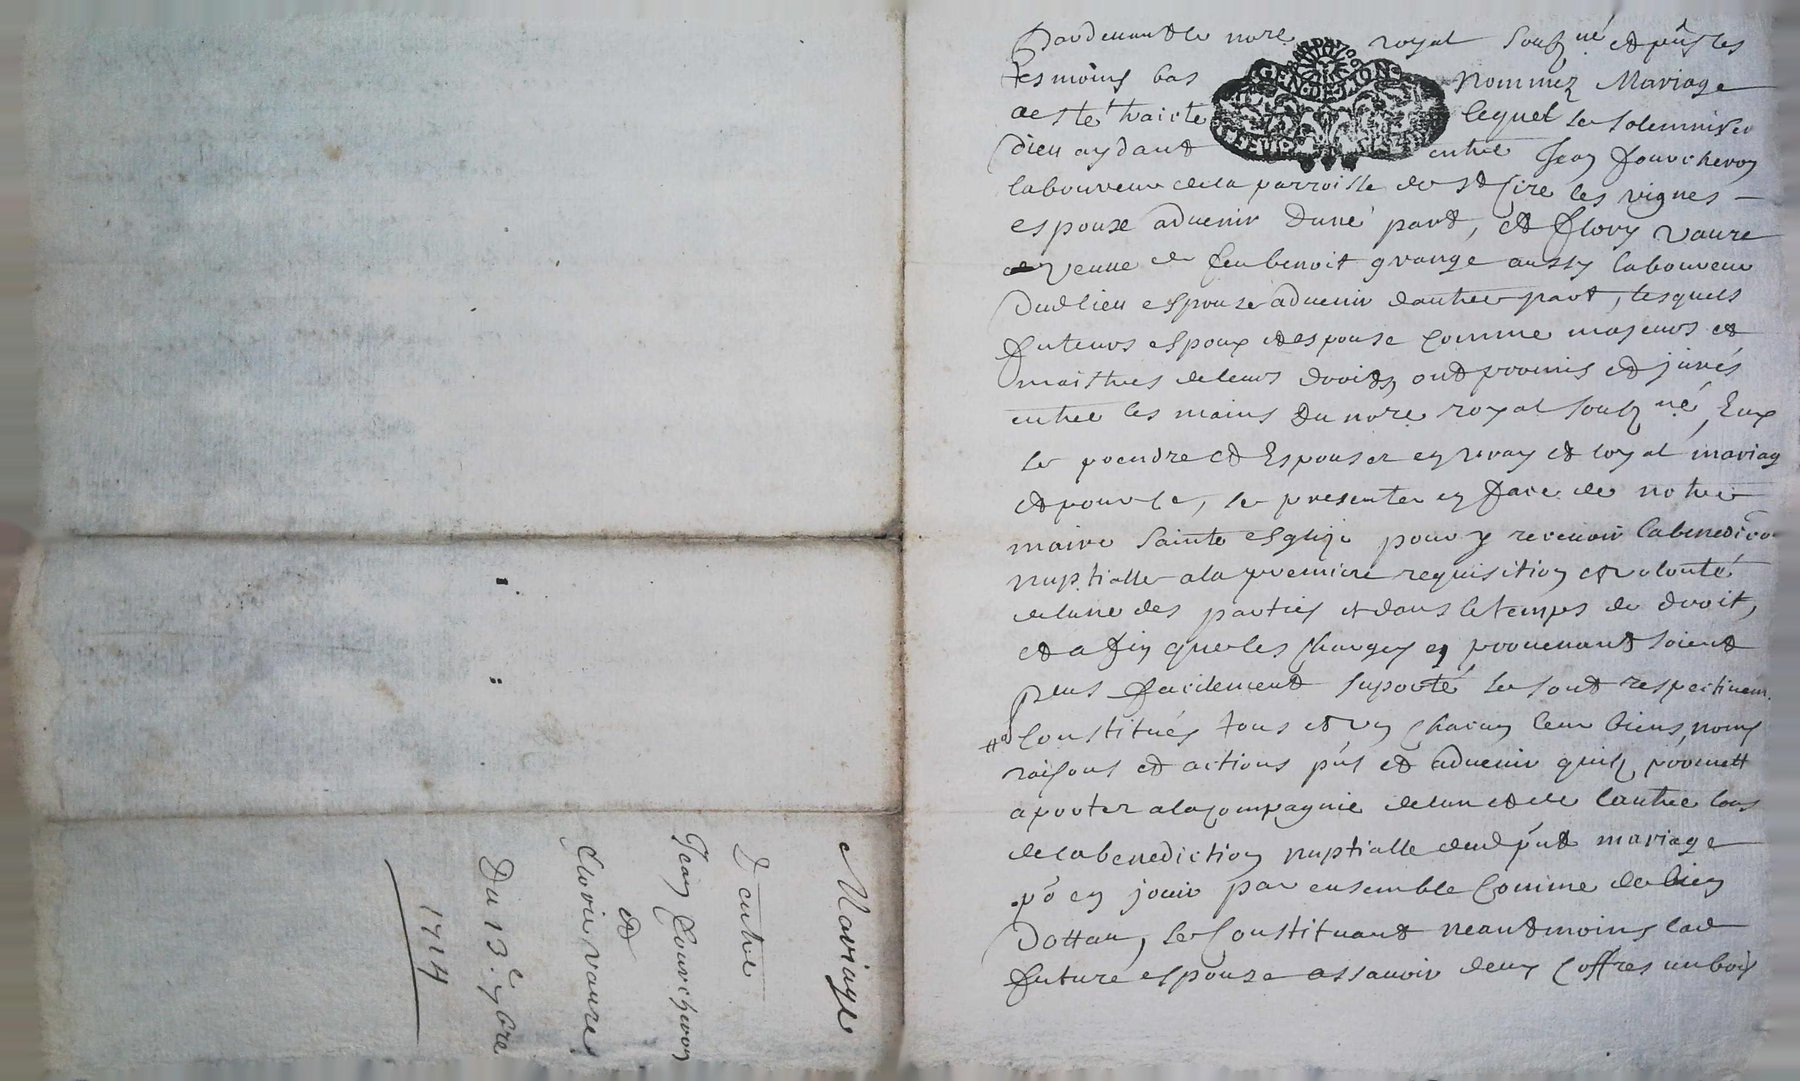 Pardevant le nore royal soubz né et pñs les
tesmoins bas nommez Mariage
a esté traicté lequel se solemnisera
Dieu aydant entre Jean fourcheron
laboureur de la parroisse de St Cire les vignes
espoux advenir dune part, et Flory vaure
veuve de feu benoit grange aussy laboureur
Dud lieu espouze advenir dautre part, lesquels
futeurs espoux et espouse comme majeurs et
maistres de leurs droits, ont promis et jurés
entre les mains du nore royal soubz né, Eux
se prendre et Espouser en vray et loyal mariag
et pour ce, se presenter en face de notre
maire Sainte esglize pour y recevoir la benedicon
nuptialle a la premiere requisition et volonté
de lune des parties et dans le temps de droit,
et afin que les charges en provenant soient
plus facilement suporté se sont respectivem
Constitués tous et un chacun leur biens, noms
raisons et actions pñs et advenir quils promett
aporter a la compagnie de lun et de lautre lors
de la benediction nuptialle dud pñt mariage
po en jouir par ensemble Comme de bien
Dottau, se Constituant neantmoins lad
future espouze assavoir deux coffres un bois
Mariage
D'entre
Jean fourcheron
et
florie vaure
Du 13e 9bre
1714
GEN. DE LION